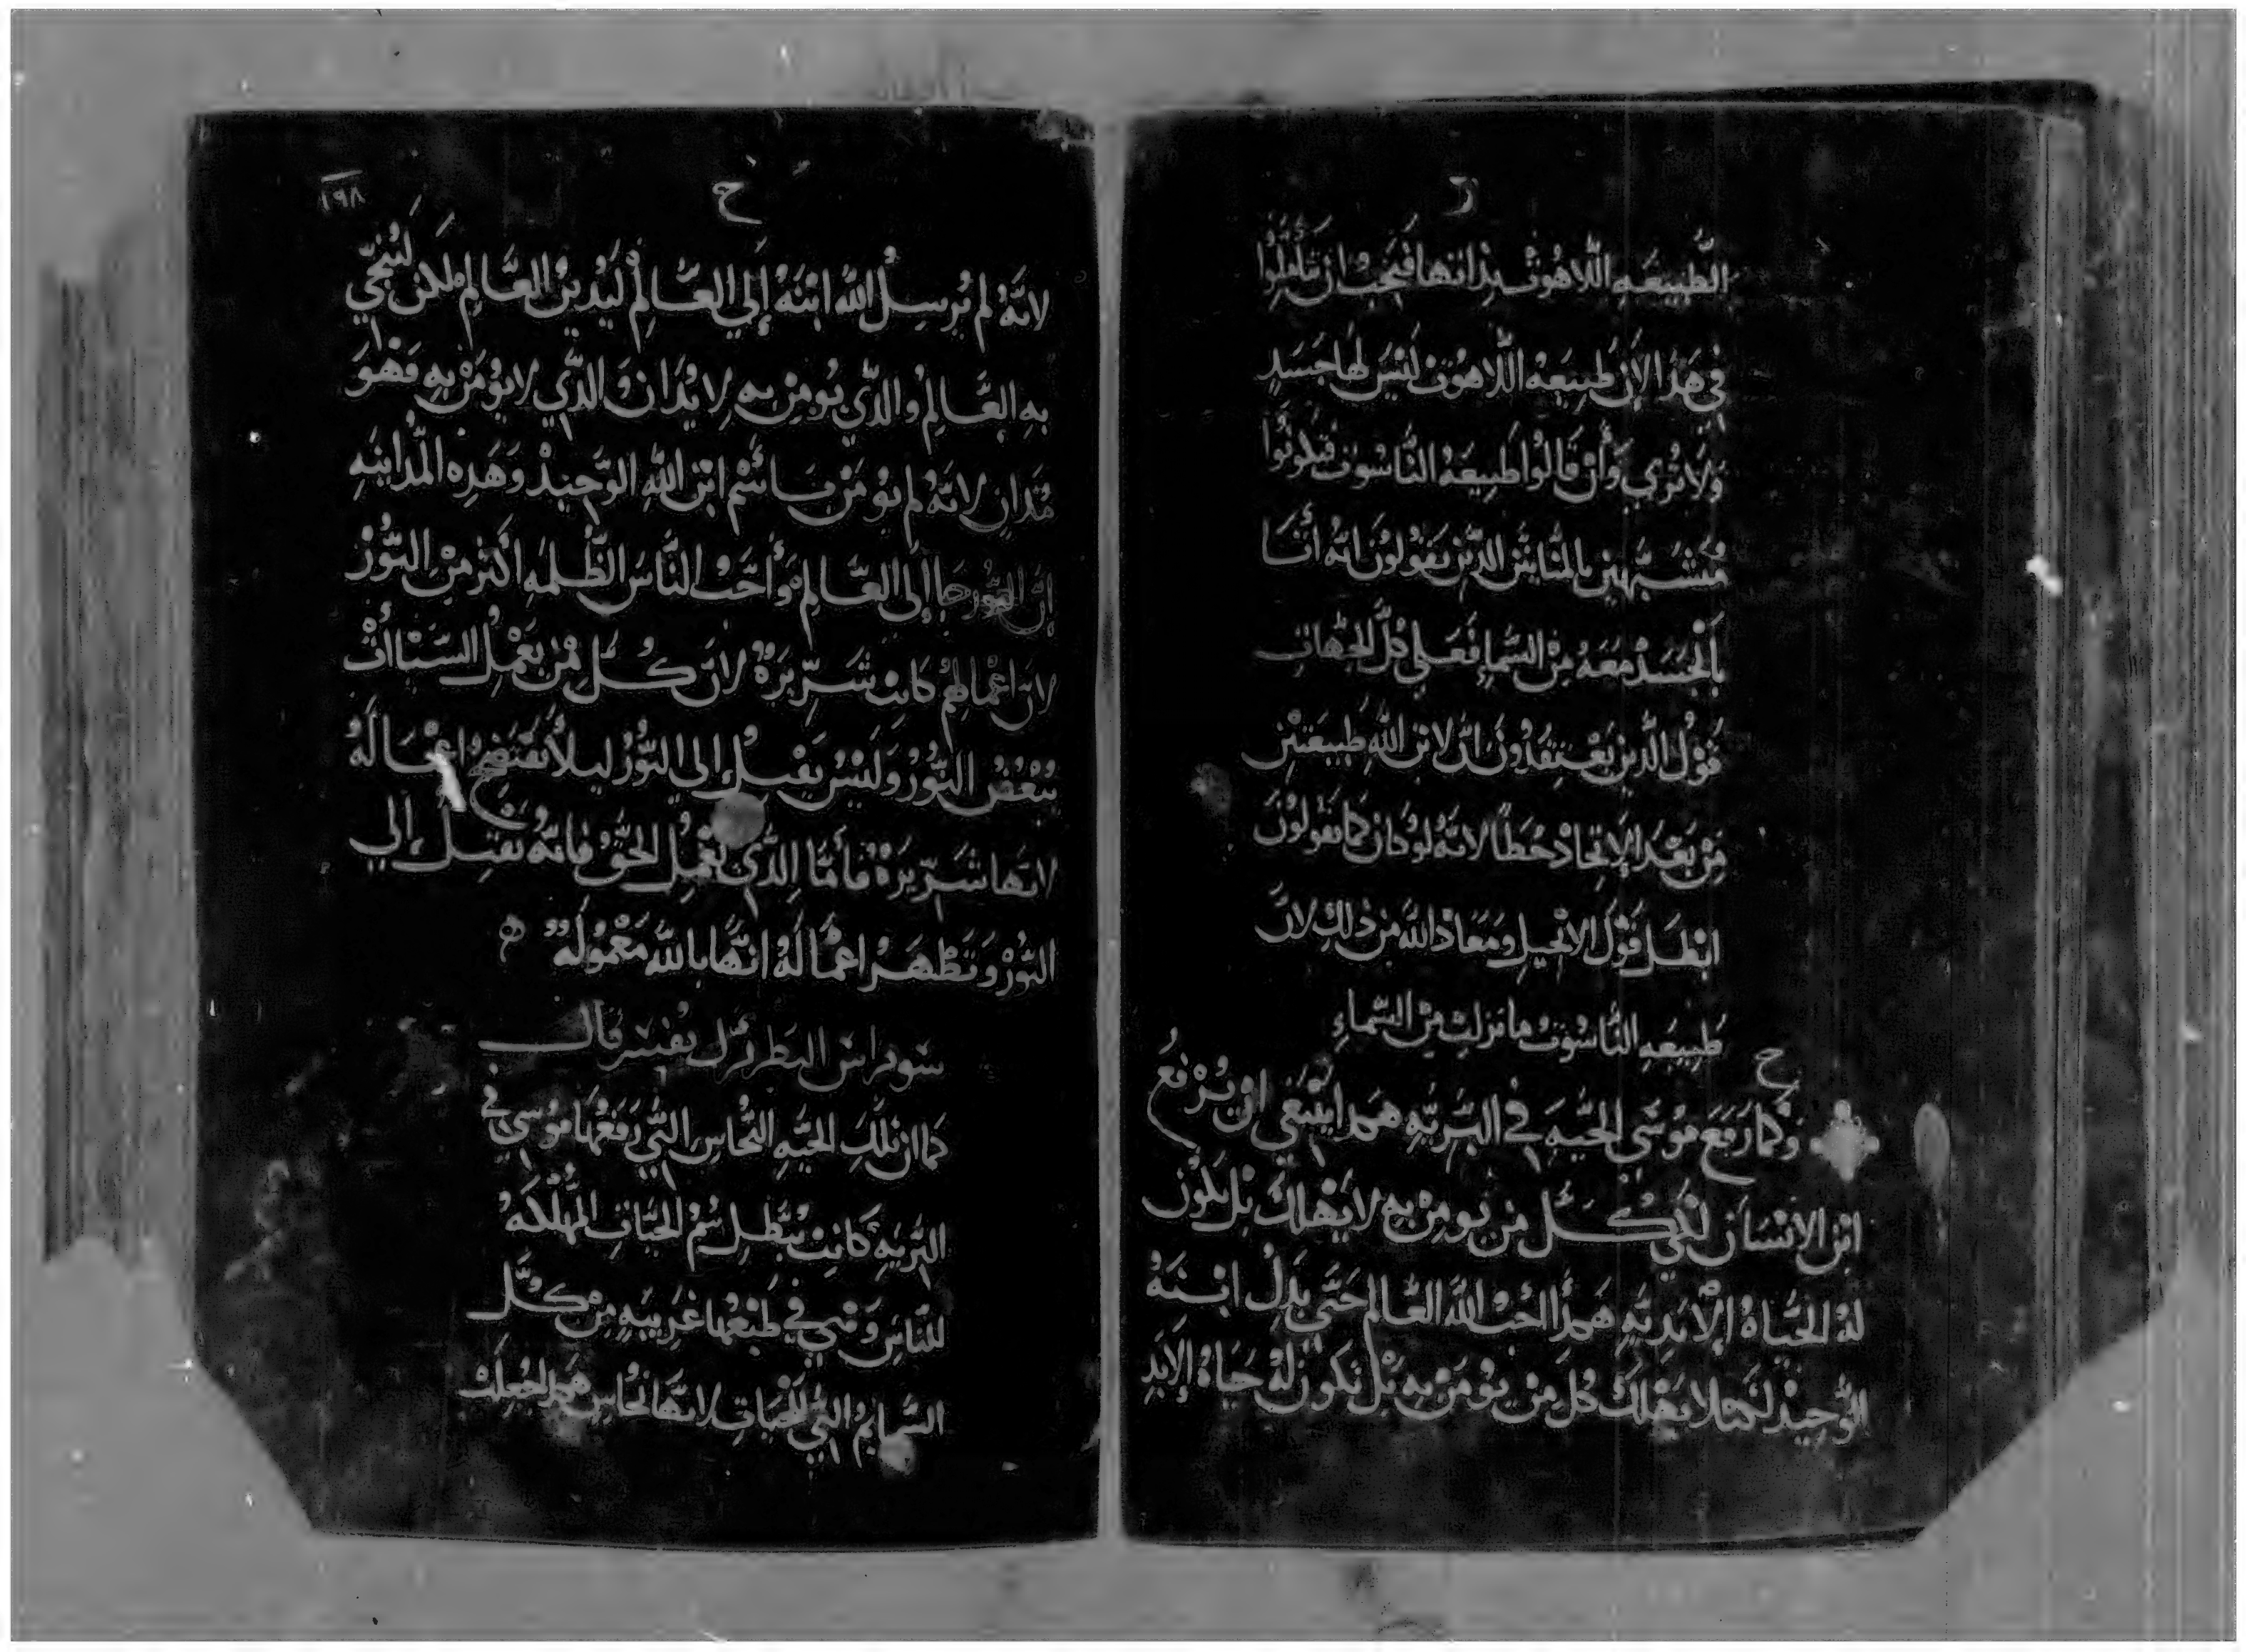 ر
الطَّبِيعَه اللاهُوت بِذاتها فَيَجِبُ ان تتَأَمّلُوا
في هَذا لإن طبِيعَة اللّاهُوت لَيْسَ لَها جَسَدٍ
وَلا تُرى وَأَنْ قَالُوا طَبِيعَةُ النَّاسُوت فَيَكونُوا
مُتَشَبِّهين بالمنانيّين الذّين يَقولون انّه أتَا
بالجَسَدْ مَعَهُ مِن السَّماءِ فَعَلى كلّ الجهات
قَوْل الذّين يَعْتقدُونَ انّ لابن اللهِ طَبِيعَتَيْن
مِن بَعْد الإتحاد خطأ لانّهُ لو كان كما يَقولون
ابْطَل قَوْل الإنجيل ومَعَاذ اللّه من ذلِك لانّ
طَبِيعَه النَّاسُوت ما نَزلت مِن السَّماءِ
ح
وَكما رَفَعَ مُوسَى الحَيه في البَريّه هَكذا يَنبَغي ان يُرْفَعُ
ابْن الإنْسَان لكي كُلّ من يومِن به لا يَهْلك بَل يَكُون
لهُ الحَيَاهُ الأبَديّه هَكذا أحَبّ اللهُ العَالم حَتّى بذل ابْنَهُ
الوَحِيدْ لكيما لا يَهْلَك كُل مَن يُومَنْ بِهِ بَلْ تَكون لهُ حَيَاهُ الأبَدِ
١٩٨
ح
لانّهُ لم يُرسِل الله ابْنَهُ إلَي العَالِمْ لَيَدين العَالِم لكن لَيُنجّي
بهِ العَالِمْ والذّي يُومِنْ به لا يُدَان وَالذّي لا يُومَنْ بِهِ فَهوَ
مُدَانٍ لانّهُ لم يومَنْ باسْم ابْن اللهِ الوَحِيدْ وَهَذِه المدَاينَهِ
إنّ النُّورْ جَا إلَى العَالِمْ وَأحَبْ النَّاسَ الظُّلمَهِ أكثَر مِنْ النُّورْ
لانّ اعْمالهُم كَانت شَرّيرَهْ لانّ كُلّ مْن يَعْمِل السَّيااتْ
يُبْغضُ النُّورْ وَلَيْسُ يَقبلْ إلى النُّورْ ليلا تفتَضِحُ اعْمَالهُ
لانّها شَرّيرَهْ فَأمّا الذّي يَعْمِل الحَقّ فَانّهُ يَقبل إلي
النُّورْ وَتَظْهَرْ اعْمَالهُ انّها بالله مَعْمُولَهْ
سَويراس البَطرَيرَك يفسّر قالَ
كما ان تِلكَ الحَيّهِ النُّحاسِ التّي رَفَعْهَا مُوسَى في
البَريّهِ كَانت تبْطِل سُمّ الحَيّاتِ المُهْلكهُ
للنّاسِ وَهي في طَبْعهَا غَرِيبَهٍ مِنْ كُلّ
السَّمايمُ التّي للحَيَات لانّها نُحاسٍ هَكذا جُعِلت